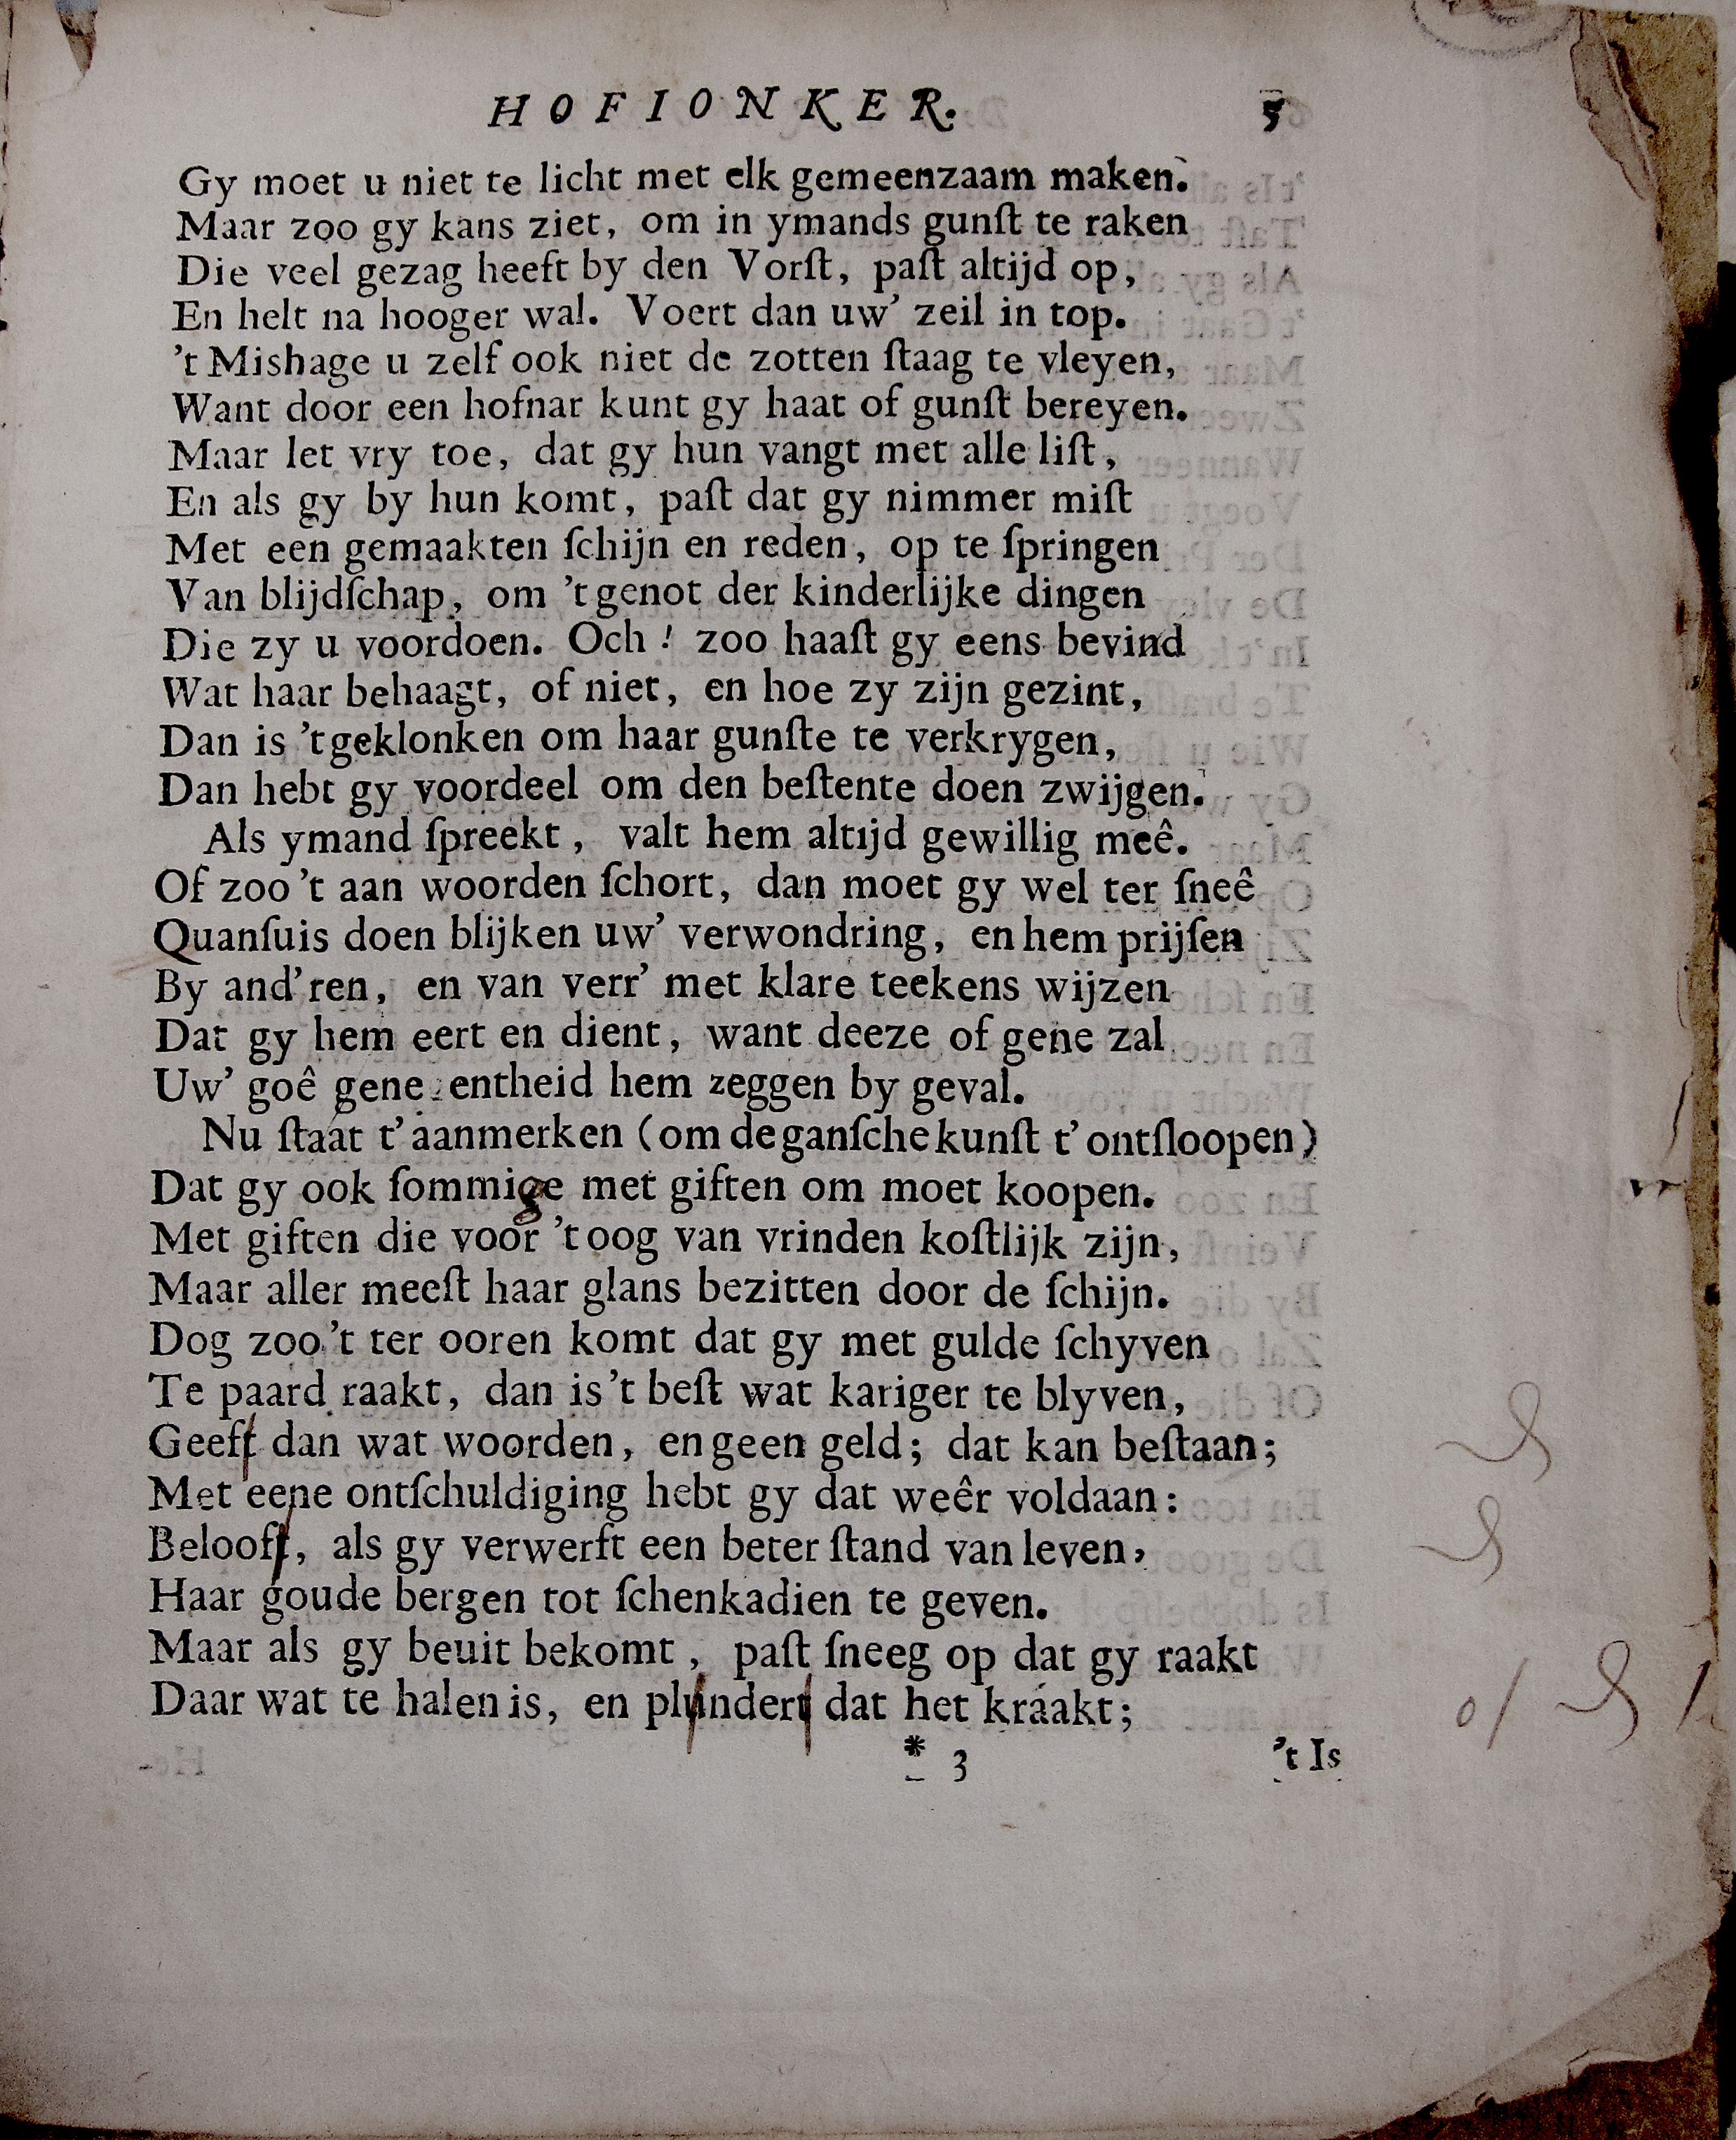 HOFIONKER. 5
Gy moet u niet te licht met elk gemeenzaam maken.
Maar zoo gy kans ziet, om in ymands gunſt te raken
Die veel gezag heeft by den Vorſt, paſt altijd op,
En helt na hooger wal. Voert dan uw' zeil in top.
't Mishage u zelf ook niet de zotten ſtaag te vleyen,
Want door een hofnar kunt gy haat of gunſt bereyen.
Maar let vry toe, dat gy hun vangt met alle liſt,
En als gy by hun komt, paſt dat gy nimmer miſt
Met een gemaakten ſchijn en reden, op te ſpringen
Van blijdſchap, om 't genot der kinderlijke dingen
Die zy u voordoen. Och! zoo haaſt gy eens bevind
Wat haar behaagt, of niet, en hoe zy zijn gezint,
Dan is 't geklonken om haar gunſte te verkrygen,
Dan hebt gy voordeel om den beſtente doen zwijgen.
Als ymand ſpreekt, valt hem altijd gewillig meê.
Of zoo 't aan woorden ſchort, dan moet gy wel ter ſneê
Quanſuis doen blijken uw' verwondring, en hem prijſen
By and'ren, en van verr' met klare teekens wijzen
Dat gy hem eert en dient, want deeze of gene zal
Uw' goê hem zeggen by geval.
Nu ſtaat t'aanmerken (om de ganſche kunſt t'ontſloopen)
Dat gy ook ſommige met giften om moet koopen.
Met giften die voor 't oog van vrinden koſtlijk zijn,
Maar aller meeſt haar glans bezitten door de ſchijn.
Dog zoo 't ter ooren komt dat gy met gulde ſchyven
Te paard raakt, dan is 't beſt wat kariger te blyven,
Geeft dan wat woorden, en geen geld; dat kan beſtaan;
Met eene ontſchuldiging hebt gy dat weêr voldaan:
Belooft, als gy verwerft een beter ſtand van leven,
Haar goude bergen tot ſchenkadien te geven.
Maar als gy beuit bekomt, paſt ſneeg op dat gy raakt
Daar wat te halen is, en dat het kraakt;
* 3 't Is